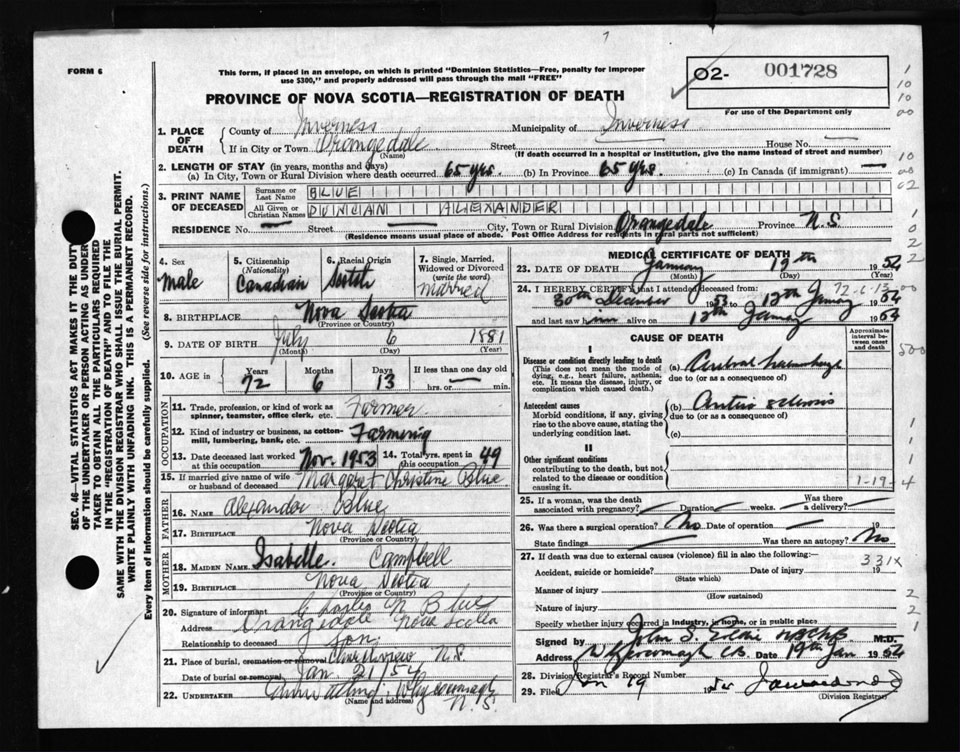 FORM 6
This form, if placed in an envelope, on which is printed "Dominion Statistics—Free, penalty for improper use $300," and properly addressed will pass through the mail "FREE"
02- 001728
For use of the Department only
PROVINCE OF NOVA SCOTIA—REGISTRATION OF DEATH
1. PLACE OF DEATH
County of Inverness Municipality of Inverness
If in City or Town Orangedale Street House No. —
(Name) (If death occurred in a hospital or institution, give the name instead of street and number)
2. LENGTH OF STAY (in years, months and days)
(a) In City, Town or Rural Division where death occurred 65 yrs. (b) In Province 65 yrs. (c) In Canada (if immigrant) —
3. PRINT NAME OF DECEASED
Surname or Last Name BLUE
All Given or Christian Names DUNCAN ALEXANDER
RESIDENCE No. — Street — City, Town or Rural Division Orangedale Province N.S.
(Residence means usual place of abode. Post Office Address for residents in rural parts not sufficient)
4. Sex Male
5. Citizenship (Nationality) Canadian
6. Racial Origin Scotch
7. Single, Married, Widowed or Divorced (write the word) married
8. BIRTHPLACE Nova Scotia
(Province or Country)
9. DATE OF BIRTH July 6 1881
(Month) (Day) (Year)
10. AGE Years 72 Months 6 Days 13 If less than one day old — hrs. or min.
OCCUPATION
11. Trade, profession, or kind of work as spinner, teamster, office clerk, etc. Farmer
12. Kind of industry or business, as cotton-mill, lumbering, bank, etc. Farming
13. Date deceased last worked at this occupation Nov. 1953 14. Total yrs. spent in this occupation 49
15. If married give name of wife or husband of deceased Margaret Christine Blue
FATHER
16. Name Alexander Blue
17. BIRTHPLACE Nova Scotia
(Province or Country)
MOTHER
18. MAIDEN NAME Isabelle Campbell
19. BIRTHPLACE Nova Scotia
(Province or Country)
20. Signature of informant Charles N Blue
Address Orangedale Nova Scotia
Relationship to deceased Son
21. Place of burial, cremation or removal N.S.
Date of burial or removal Jan. 21/54
22. UNDERTAKER Whycocomagh N.S.
(Name and address)
MEDICAL CERTIFICATE OF DEATH
23. DATE OF DEATH January 19th 1954
(Month) (Day)
24. I HEREBY CERTIFY that I attended deceased from:
30th December 1953 to 12th January 1954
72-6-13
and last saw him alive on 12th January 1954
CAUSE OF DEATH
Approximate interval between onset and death
I
Disease or condition directly leading to death
(This does not mean the mode of dying, e.g., heart failure, asthenia, etc. It means the disease, injury, or complication which caused death.)
(a) Cerebral haemorrhage
due to (or as a consequence of)
Antecedent causes
Morbid conditions, if any, giving rise to the above cause, stating the underlying condition last.
(b) Arterio sclerosis
due to (or as a consequence of)
(c)
II
Other significant conditions
contributing to the death, but not related to the disease or condition causing it.
1-19-4
25. If a woman, was the death associated with pregnancy? — Duration — weeks. Was there a delivery? —
26. Was there a surgical operation? No Date of operation — 19
State findings — Was there an autopsy? No
27. If death was due to external causes (violence) fill in also the following:—
331X
Accident, suicide or homicide? Date of injury 19
(State which)
Manner of injury
(How sustained)
Nature of injury
Specify whether injury occurred in industry, in home, or in public place
Signed by John S. M.D.
Address Whycocomagh C.B. Date 19th Jan 1954
28. Division Registrar's Record Number
29. Filed Jan 19
(Division Registrar)
SEC. 46—VITAL STATISTICS ACT MAKES IT THE DUTY OF THE UNDERTAKER OR PERSON ACTING AS UNDERTAKER TO OBTAIN ALL THE PARTICULARS REQUIRED IN THE "REGISTRATION OF DEATH" AND TO FILE THE SAME WITH THE DIVISION REGISTRAR WHO SHALL ISSUE THE BURIAL PERMIT.
WRITE PLAINLY WITH UNFADING INK. THIS IS A PERMANENT RECORD.
Every item of information should be carefully supplied. (See reverse side for instructions.)